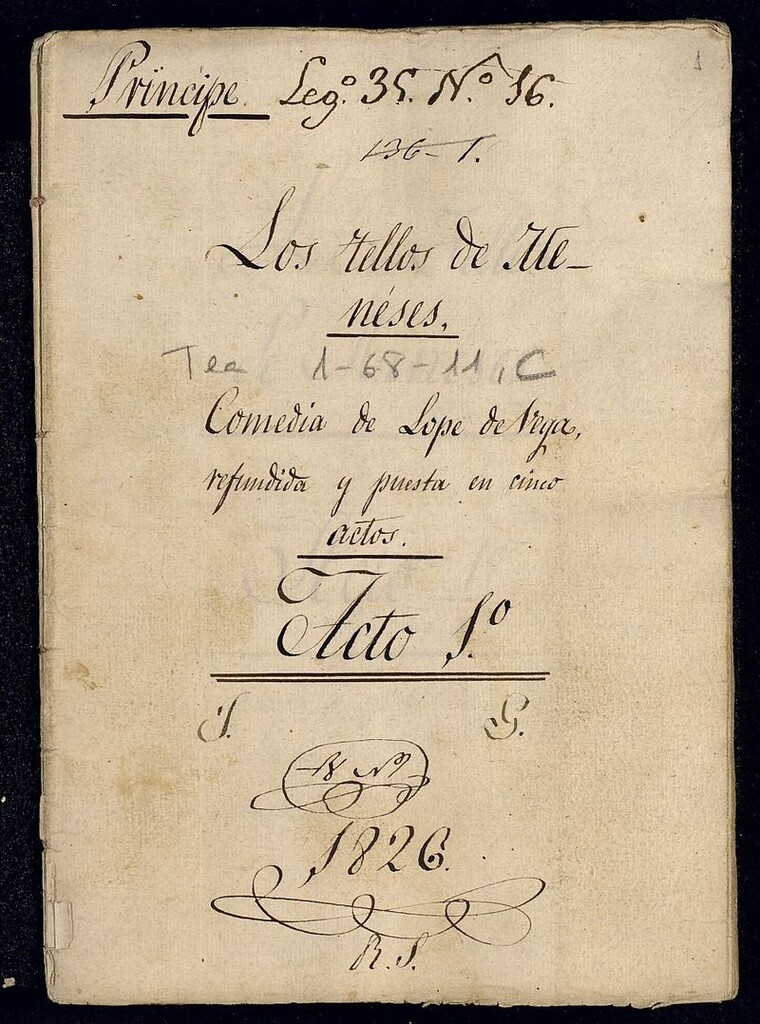 1
Príncipe. Leg.º 35. N.º 16.
136-1.
Los tellos de Me-
néses.
Tea 1-68-11, C
Comedia de Lope de Vega,
refundida y puesta en cinco
actos.
Acto 1.º
G.
1826.
R. S.